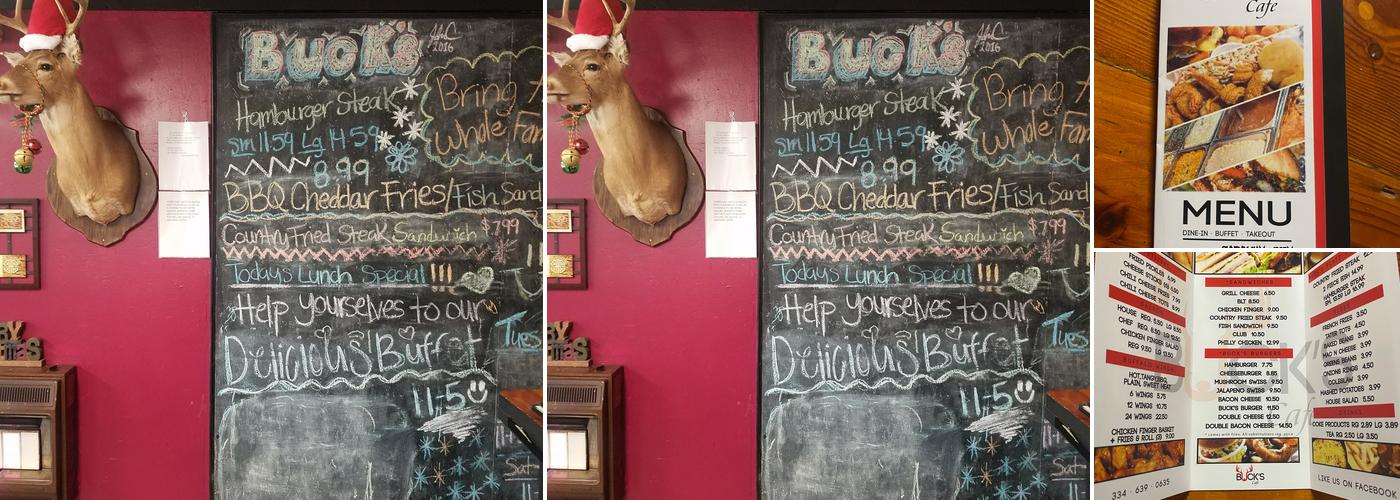 Buck's
2016
Hamburger Steak
Sm 11.59 Lg 14.59
8.99
BBQ Cheddar Fries/Fish Sand
Country Fried Steak Sandwich $7.99
Today's Lunch Special!!!
Help yourselves to our
Delicious Buffet
11-5
Bring
Whole Fam
Tues
Sat-
Buck's
2016
Hamburger Steak
Sm 11.59 Lg 14.59
8.99
BBQ Cheddar Fries/Fish Sand
Country Fried Steak Sandwich $7.99
Today's Lunch Special!!!
Help yourselves to our
Delicious Buffet
11-5
Bring
Whole Fam
Tues
Sat-
Cafe
MENU
DINE-IN · BUFFET · TAKEOUT
FRIED PICKLES 6.99
CHEESE STICKS (6) 6.50
CHILI CHEESE FRIES 7.99
CHILI CHEESE TOTS 8.99
HOUSE REG. 5.50 LG 8.50
CHEF REG. 8.50 LG 12.50
CHICKEN FINGER SALAD
REG 9.50 LG 13.50
BUFFALO WINGS
HOT, TANGY, BBQ,
PLAIN, SWEET HEAT
6 WINGS 5.75
12 WINGS 10.75
24 WINGS 22.50
CHICKEN FINGER BASKET
+ FRIES & ROLL (3) 9.00
334 · 639 · 0635
*SANDWICHES
GRILL CHEESE 6.50
BLT 8.50
CHICKEN FINGER 9.00
COUNTRY FRIED STEAK 9.50
FISH SANDWICH 9.50
CLUB 10.50
PHILLY CHICKEN 12.99
*BUCK'S BURGERS
HAMBURGER 7.75
CHEESEBURGER 8.85
MUSHROOM SWISS 9.50
JALAPENO SWISS 9.50
BACON CHEESE 10.50
BUCK'S BURGER 11.50
DOUBLE CHEESE 12.50
DOUBLE BACON CHEESE 14.50
BUCK'S
Cafe
COUNTRY FRIED STEAK
2 PIECE FISH 14.99
HAMBURGER STEAK
SM. 12.59 LG 16.99
FRENCH FRIES 3.50
TATER TOTS 4.50
BAKED BEANS 3.99
MAC N CHEESE 3.99
GREENS BEANS 3.99
ONIONS RINGS 4.50
COLESLAW 3.99
MASHED POTATOES 3.99
HOUSE SALAD 5.50
DRINKS
COKE PRODUCTS RG 2.89 LG 3.89
TEA RG 2.50 LG 3.50
LIKE US ON FACEBOOK